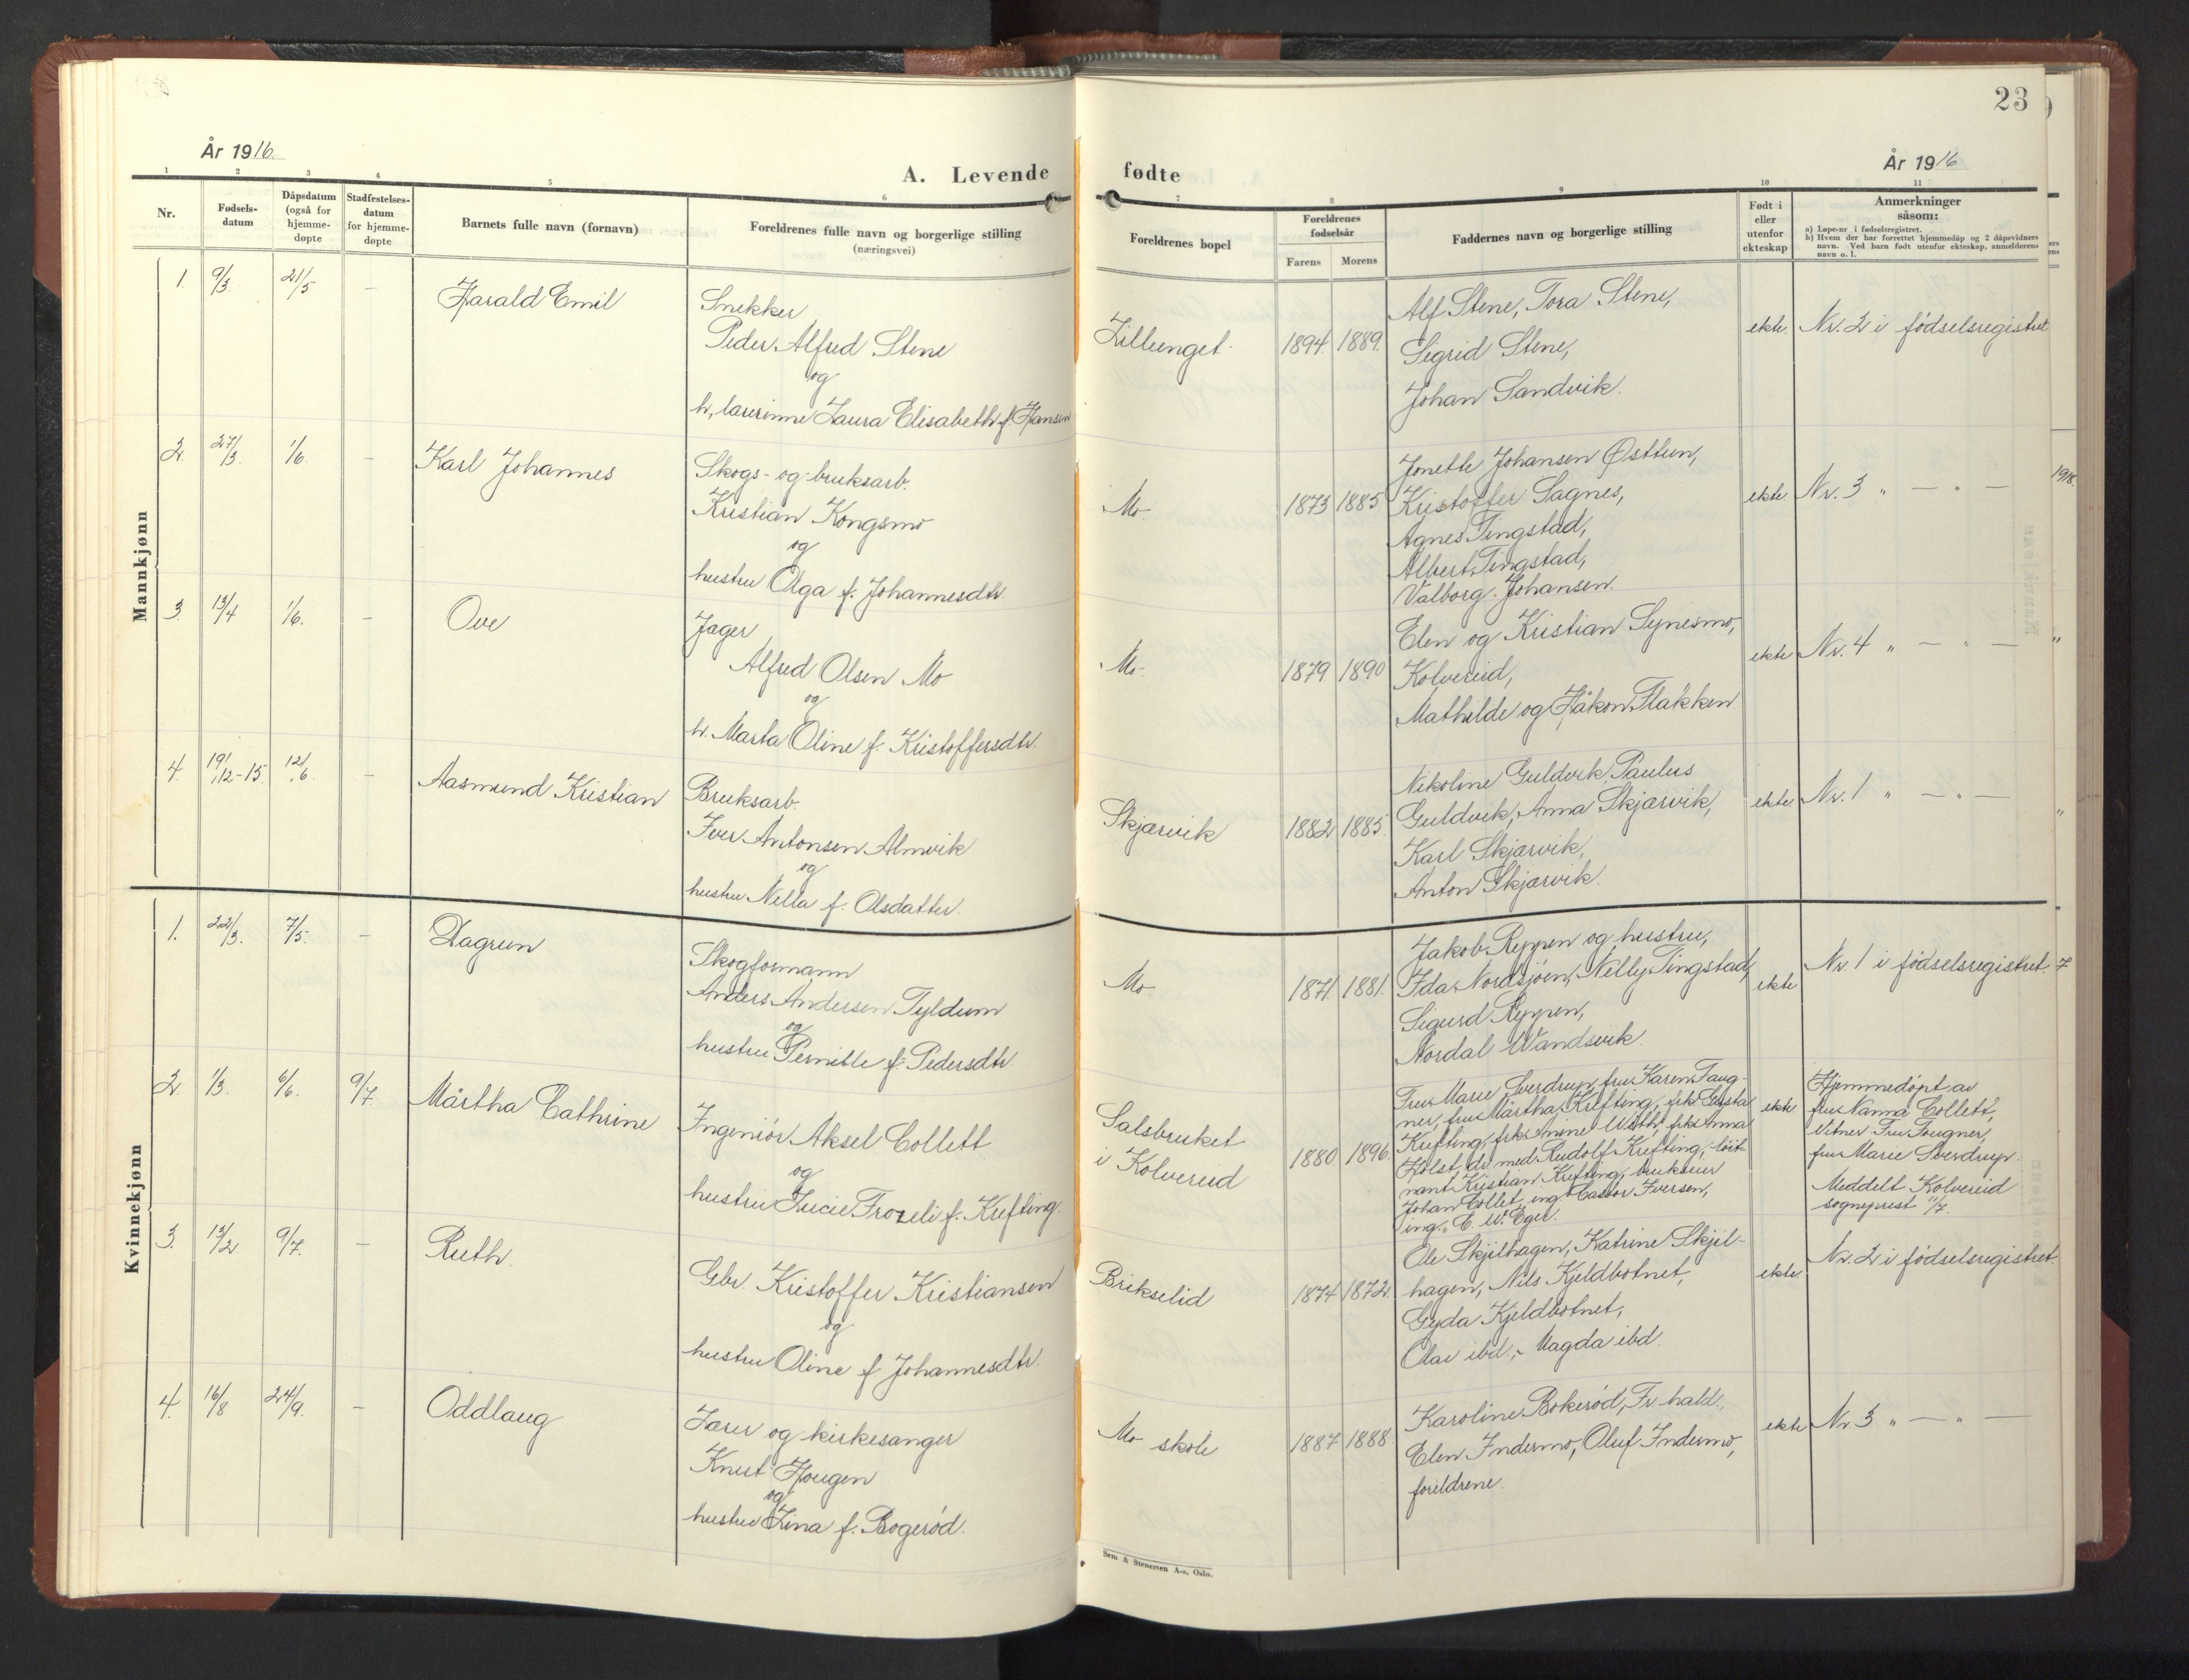 23
År 1916
A. Levende
fødte
År 1916
1 2 3 4 5 6 7 8 9 10 11
Nr.
Fødsels-
datum
Dåpsdatum
(også for
hjemme-
døpte
Stadfestelses-
datum
for hjemme-
døpte
Barnets fulle navn (fornavn)
Foreldrenes fulle navn og borgerlige stilling
(næringsvei)
Foreldrenes bopel
Foreldrenes
fødselsår
Farens Morens
Faddernes navn og borgerlige stilling
Født i
eller
utenfor
ekteskap
Anmerkninger
såsom:
a) Løpe-nr i fødselsregistret.
b) Hvem der har forrettet hjemmedåp og 2 dåpsvidners
navn. Ved barn født utenfor ekteskap, anmelderens
navn o. l.
Mannkjønn
1. 9/3. 21/5 – Harald Emil
Snekker
Peder Alfred Stene
og
h. Laura Elisabeth f. Hansen
1894. 1889.
Alf Stene, Tora Stene,
Sigrid Stene,
Johan Sandvik.
ekte. Nr. 2 i fødselsregistret
2. 27/3. 1/6. – Karl Johannes
Skogs- og bruksarb.
Kristian Kongsmo
og
hustru Olga f. Johannesdtr.
Mo. 1873 1885
Jonette Johansen Østtun,
Kristoffer Sagnes,
Agnes Tingstad,
Albert Tingstad,
Valborg Johansen.
ekte Nr. 3 " — " —
3. 13/4 1/6. – Ove
Jager
Alfred Olsen Mo
og
h. Marta Oline f. Kristoffersdtr.
Mo. 1879 1890
Elen og Kristian Synesmo,
Kolvereid,
Mathilde og Håkon Flakken.
ekte Nr. 4 " — " —
4. 19/12-15. 12/6. – Aasmund Kristian
Bruksarb.
Iver Antonsen Almvik
og
hustru Nella f. Olsdatter.
Skjærvik 1882 1885
Nikoline Guldvik, Paulus
Guldvik, Anna Skjærvik,
Karl Skjærvik,
Anton Skjærvik.
ekte Nr. 1 " — " —
Kvinnekjønn
1. 22/3. 7/5. – Dagrun
Skogformann
Anders Andersen Tyldum
og
hustru Pernille f. Pedersdtr.
Mo. 1871. 1881.
Jakob Reppen og hustru,
Ida Nordsjøen, Nelly Tingstad,
Sigurd Reppen,
Nordal Wandsvik.
ekte Nr. 1 i fødselsregistret.
2. 1/3. 6/6. 9/7. Märtha Cathrine
Ingeniør Aksel Collett
og
hustru Lucie Trozeli f. Krefting.
Salsbruket
i Kolvereid
1880 1896.
Fru Marie Sverdrup, fru Karen Faug-
ner, fru Märtha Krefting, frk. Gusta
Krefting, frk. Anine Wirth, frk. Anna
Holst, dr. med. Rudolf Krefting, løit-
nant Kristian Krefting, brukseier
Johan Collet, ing. Castor Iversen,
ing. E. W. Eger.
ekte
Hjemmedøpt av
fru Nanna Collett,
Vitner Fru Fougner,
fru Marie Sverdrup.
Meddelt Kolvereid
sogneprest 11/7.
3. 13/2. 9/7. – Ruth.
Gbr. Kristoffer Kristiansen
og
hustru Oline f. Johannesdtr.
Brikselid 1874 1872.
Ole Skjilhagen, Katrine Skjil-
hagen, Nils Kjeldbotnet,
Gyda Kjeldbotnet,
Olav ibd., Magda ibd.
ekte. Nr. 2 i fødselsregistret.
4. 16/8 24/9. – Oddlaug
Lærer og kirkesanger
Knut Hougen
og
hustru Lina f. Bogerød.
Mo skole 1887 1888
Karoline Bokerød, Fr. hald.,
Elen Indermo, Oluf Indermo,
foreldrene.
ekte Nr. 3 " — " —
Sem & Stenersen A-s, Oslo.